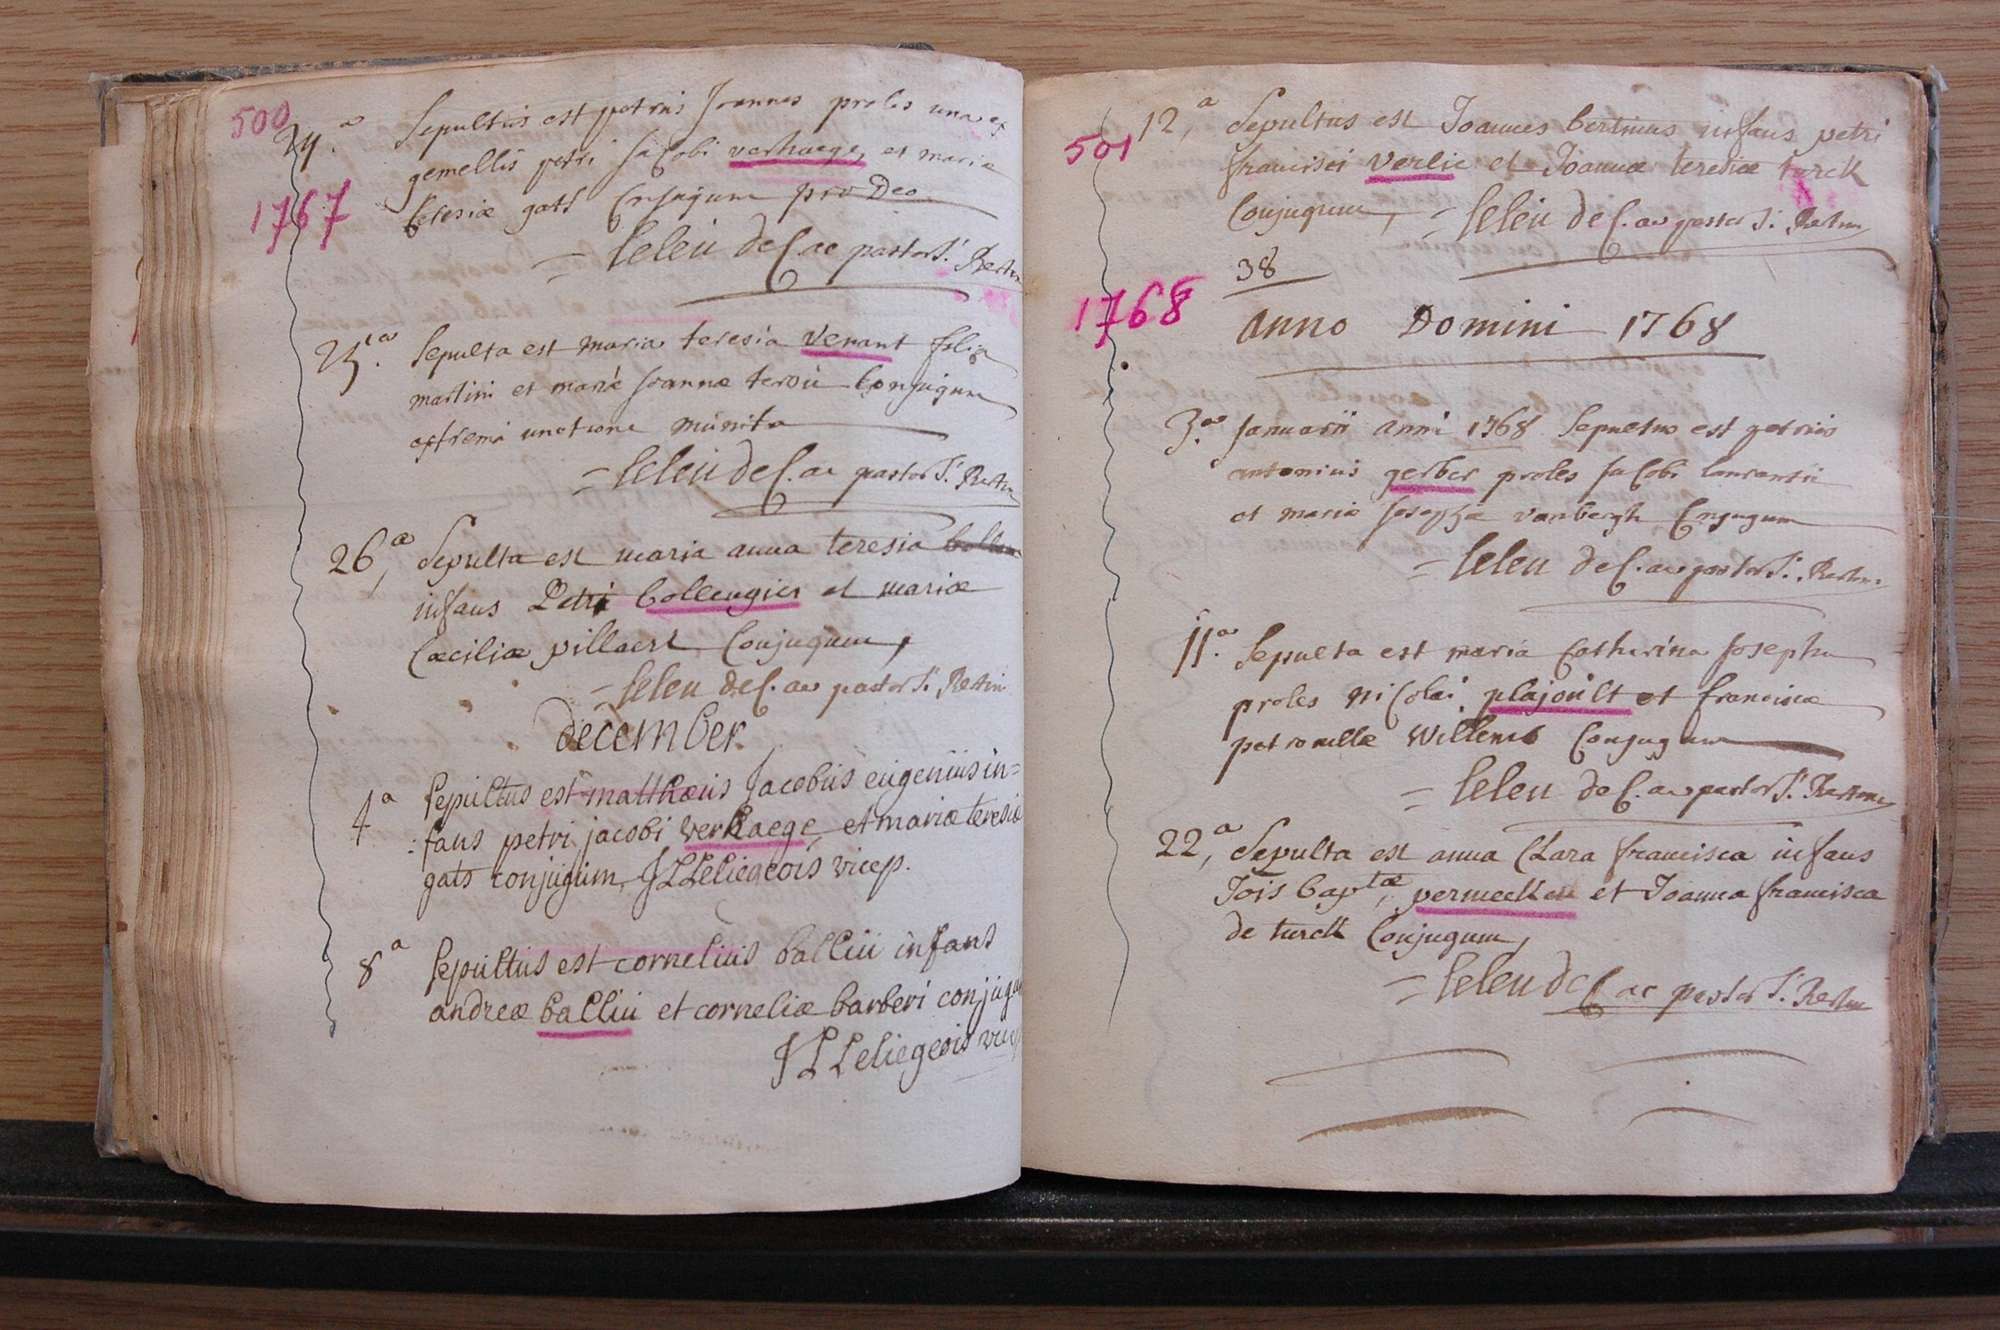 500
24.a Sepultus est petrus Joannes proles una ex
1767
gemellis petri Jacobi verhaege, et mariæ
teresiæ gats Conjugum pro Deo
= Leleu dec. ac pastor S.
25.a Sepulta est maria teresia Venant filia
martini et mariæ Joannæ Conjugum
extremâ unctione munita
= Leleu dec. ac pastor S.
26,a Sepulta est maria anna teresia
infans Petri bollengier et mariæ
Cæciliæ pillaert Conjugum,
= Leleu dec. ac pastor S.
december
4a Sepultus est matthæus Jacobus eugenius in=
:fans petri jacobi verhaege, et mariæ teresiæ
gats conjugum, JLLeliegeois vicep.
8a Sepultus est cornelius balliu infans
andreæ balliu et corneliæ barberi conjugum
JLLeliegeois vicep
501
12,a Sepultus est Joannes bertinus infans petri
francisci verlie et Joannæ teresiæ turck
Conjugum, = Leleu dec. ac pastor S.
38
1768
anno Domini 1768
3.a Januarii anni 1768 Sepultus est petrus
antonius gerber proles Jacobi laurentii
et mariæ Josephæ vanbergh Conjugum
= Leleu dec. ac pastor S.
11.a Sepulta est maria Catharina Josepha
proles nicolai plajoult et franciscæ
petronillæ Willems Conjugum
= Leleu dec. ac pastor S.
22,a Sepulta est anna Clara francisca infans
Jois baptæ, vermeellen et Joanna francisca
de turck Conjugum,
= Leleu dec ac pastor S.